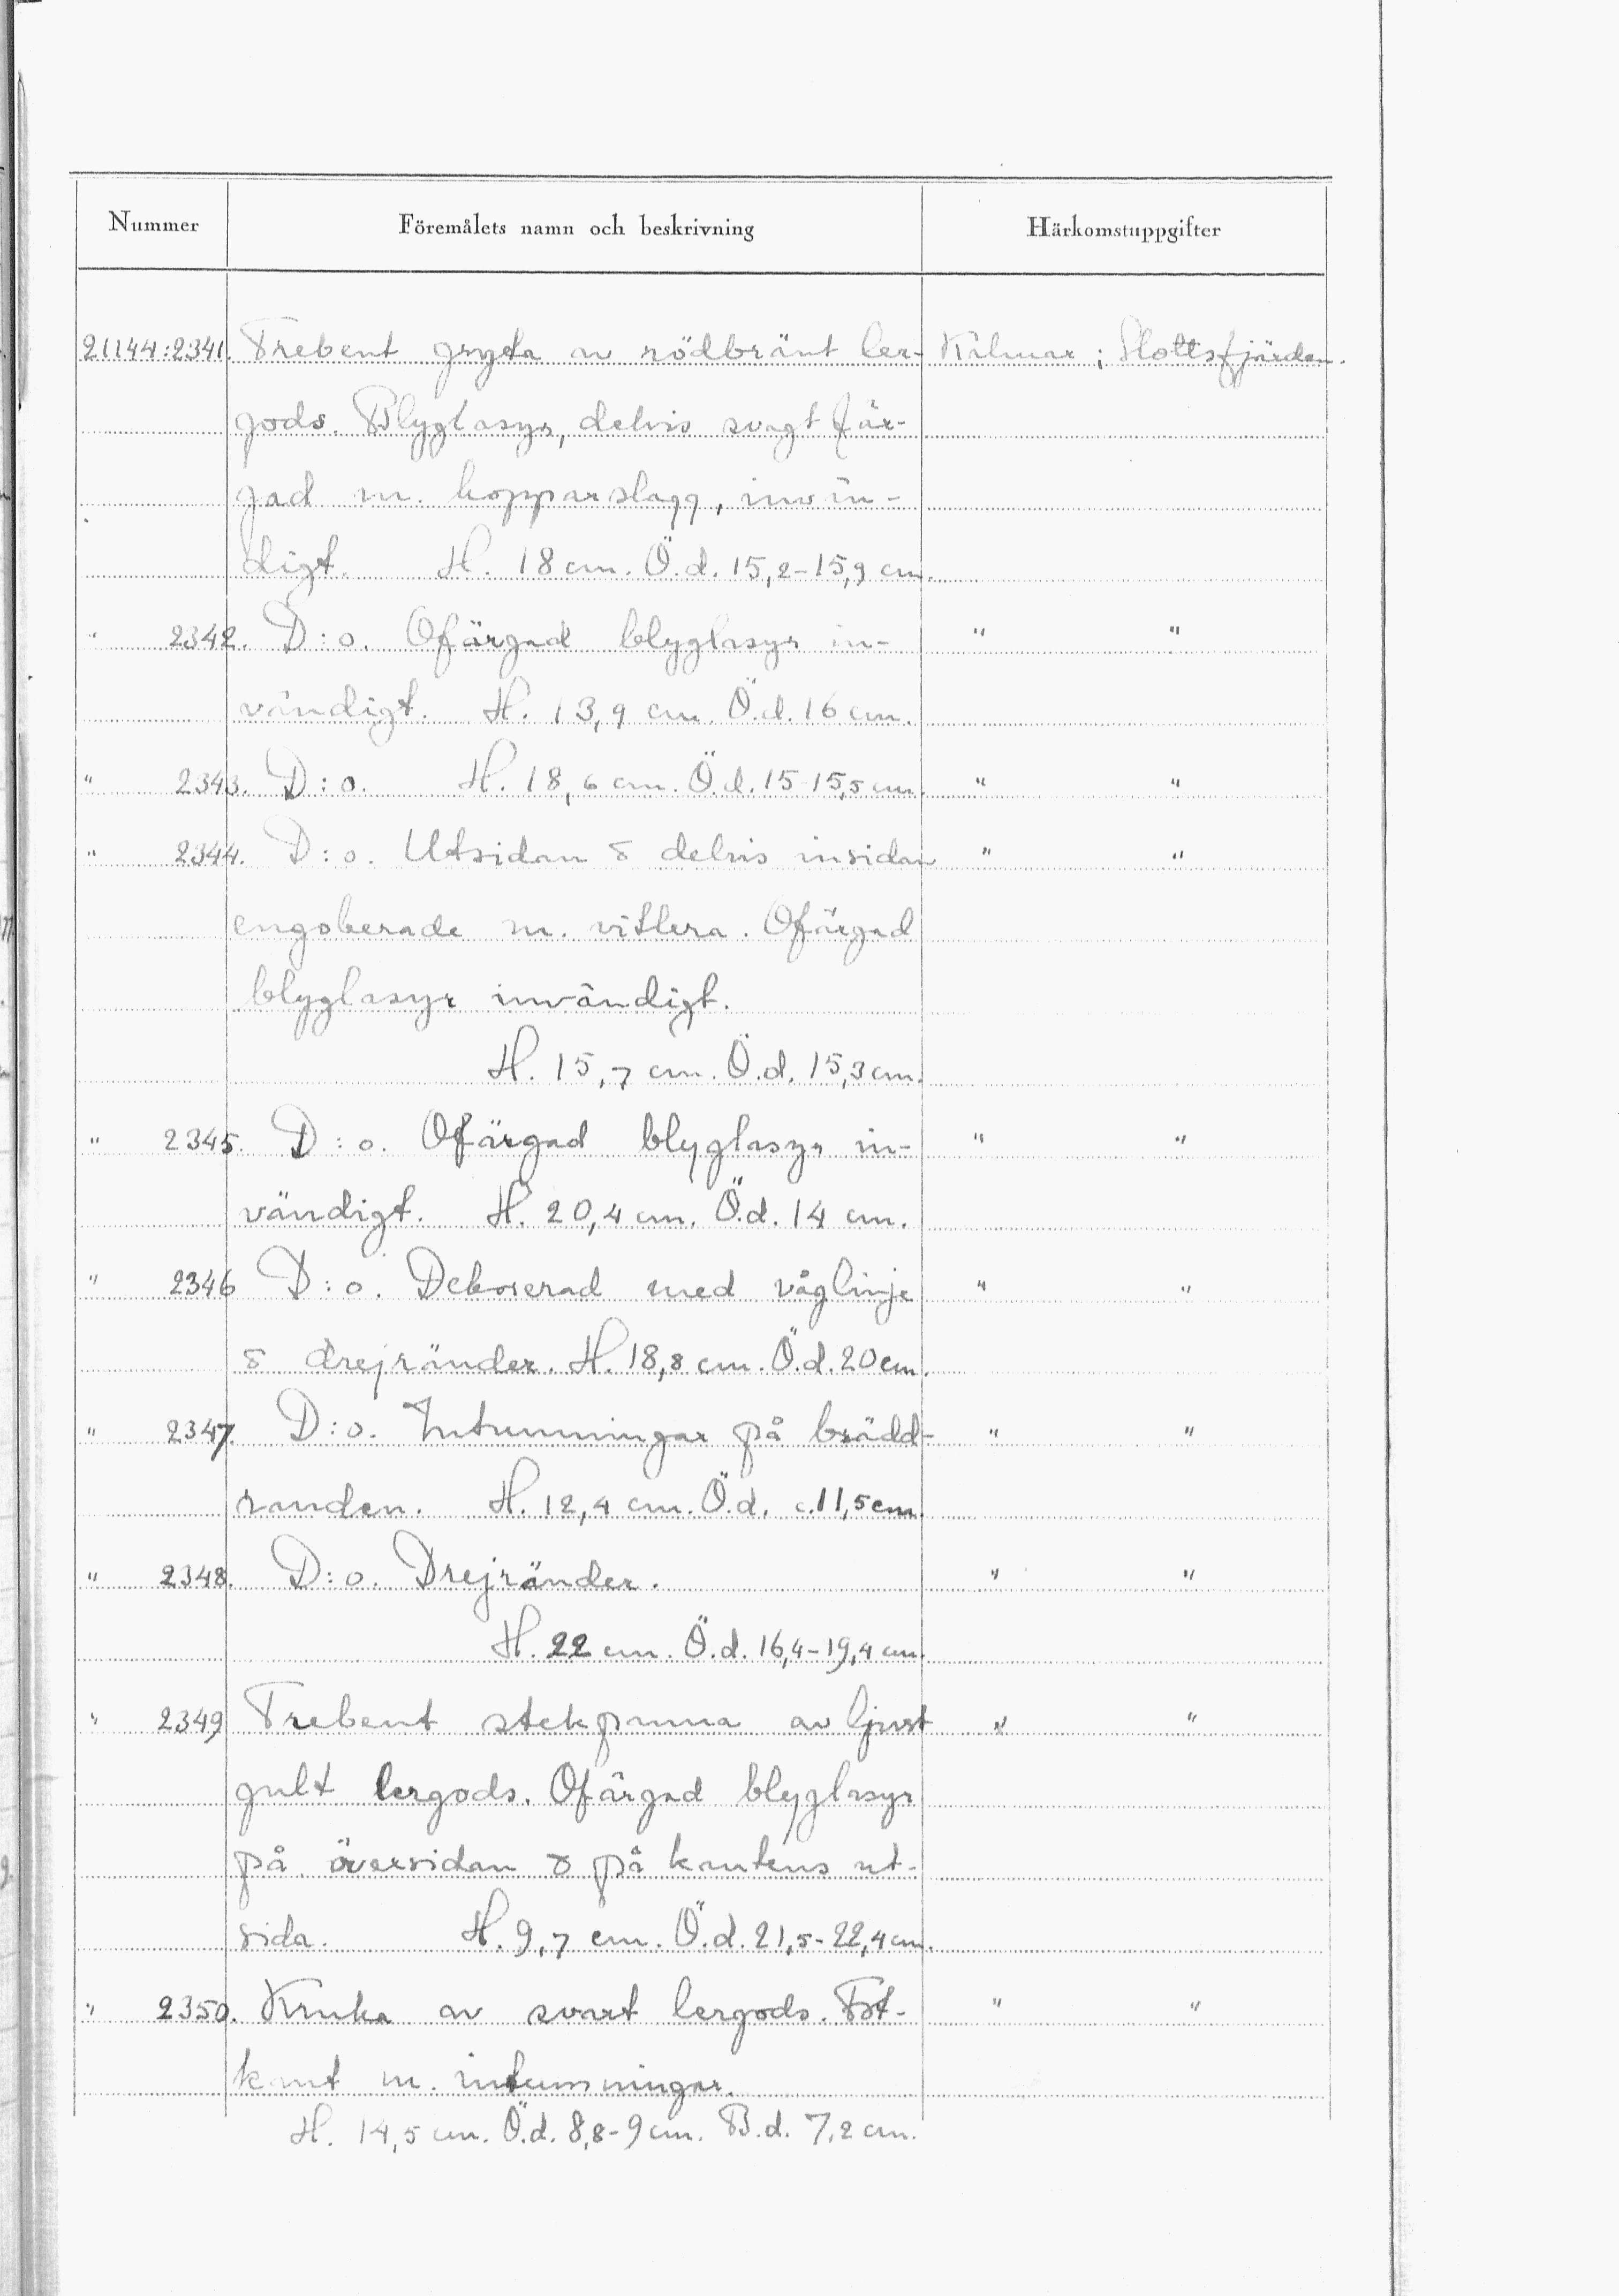 Nummer Föremålets namn och beskrivning Härkomstuppgifter
21144:2341. Trebent gryta av rödbränt ler- Kalmar; Slottsfjärden.
gods. Blyglasyr, delvis svagt fär-
gad m. kopparslagg, invän-
digt. H. 18 cm. Ö.d. 15,2-15,9 cm.
" 2342. D:o. Ofärgad blyglasyr in- " "
vändigt. H. 13,9 cm. Ö.d. 16 cm.
" 2343. D:o. H. 18,6 cm. Ö.d. 15-15,5 cm. " "
" 2344. D:o. Utsidan & delvis insidan " "
engoberade m. vitlera. Ofärgad
blyglasyr invändigt.
H. 15,7 cm. Ö.d. 15,3 cm.
" 2345. D:o. Ofärgad blyglasyr in- " "
vändigt. H. 20,4 cm. Ö.d. 14 cm.
" 2346 D:o. Dekorerad med våglinje " "
& drejränder. H. 18,8 cm. Ö.d. 20 cm.
" 2347. D:o. Intumningar på brädd- " "
randen. H. 12,4 cm. Ö.d. c. 11,5 cm.
" 2348. D:o. Drejränder. " "
H. 22 cm. Ö.d. 16,4-19,4 cm.
" 2349 Trebent stekpanna av ljust " "
gult lergods. Ofärgad blyglasyr
på översidan & på kantens ut-
sida. H. 9,7 cm. Ö.d. 21,5-22,4 cm.
" 2350. Kruka av svart lergods. Fot- " "
kant m. intumningar.
H. 14,5 cm. Ö.d. 8,8-9 cm. B.d. 7,2 cm.